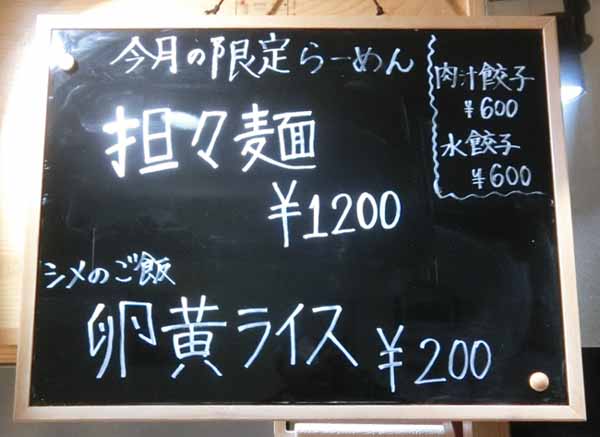 今月の限定らーめん
担々麺
¥1200
シメのご飯
卵黄ライス ¥200
肉汁餃子
¥600
水餃子
¥600